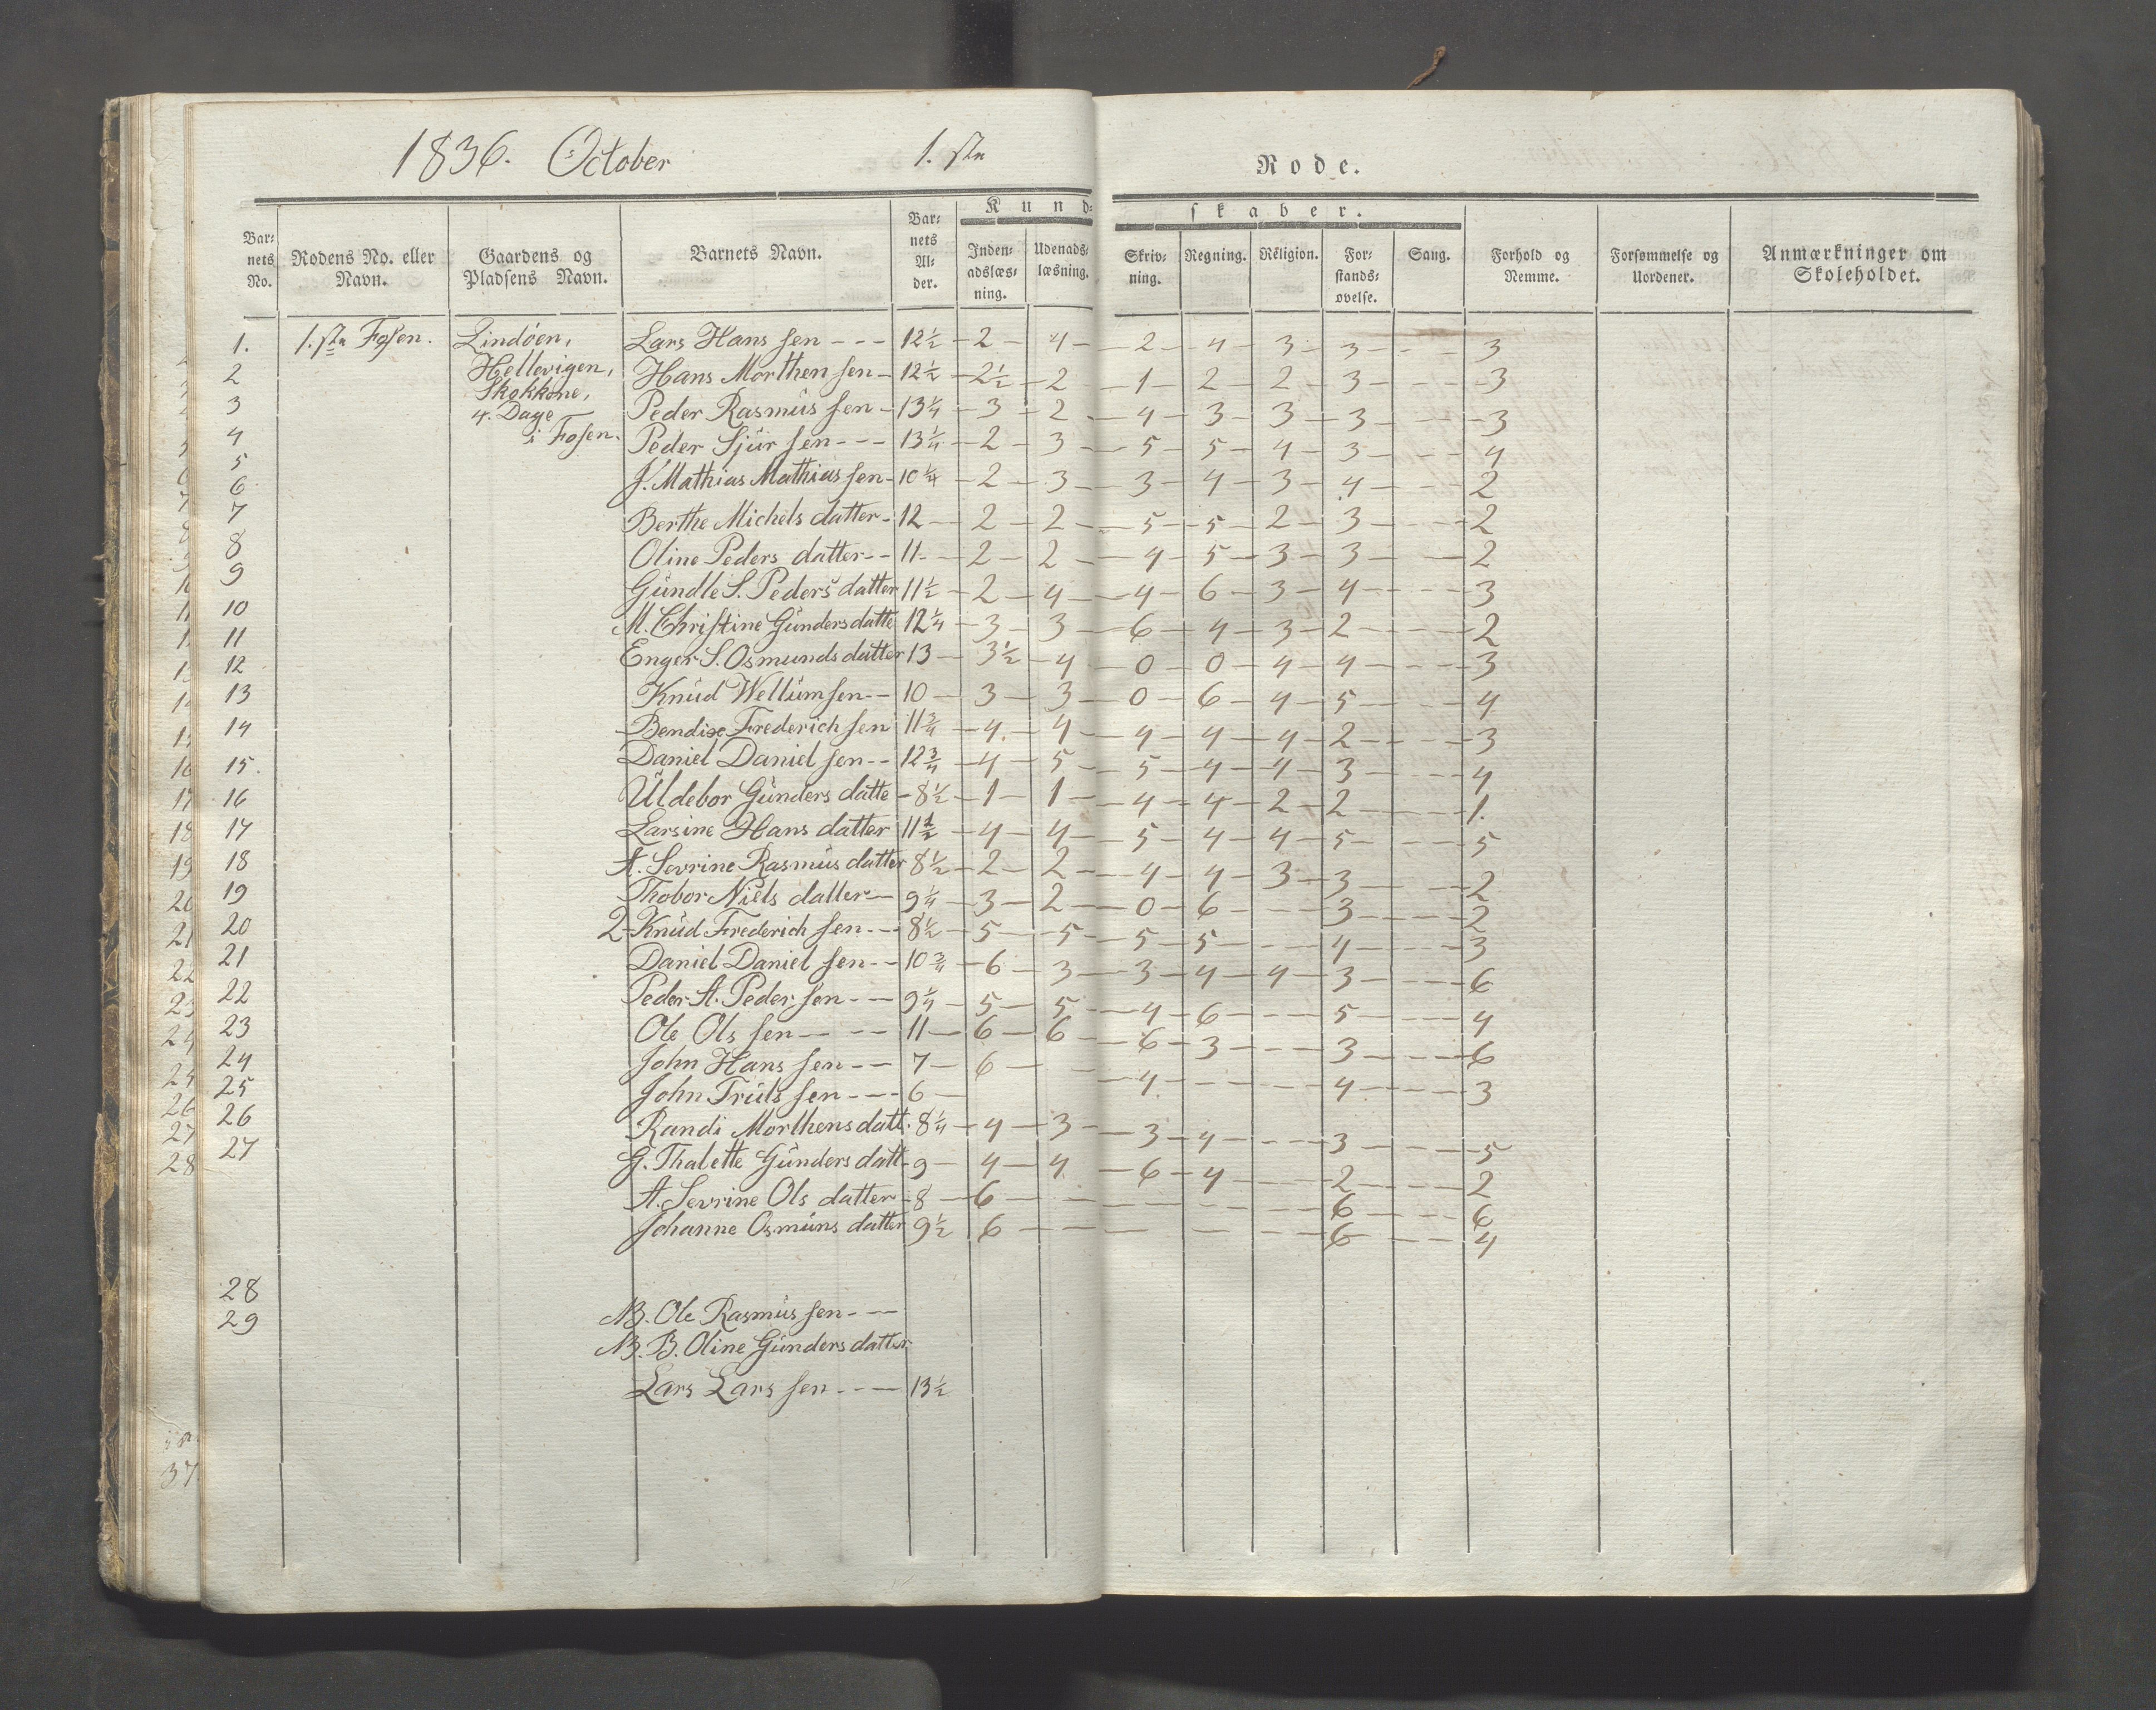 1836. October 1. ste Rode.
Kundskaber.
Barnets No. Rodens No. eller Navn. Gaardens og Pladsens Navn. Barnets Navn. Barnets Alder. Indenadslæsning. Udenadslæsning. Skrivning. Regning. Religion. Forstandsøvelse. Sang. Forhold og Nemme. Forsømmelse og Uordener. Anmærkninger om Skoleholdet.
1. 1. ste Fosen. Lindöen, Lars Hans sen - - - 12½ - 2 - 4 - 2 - 4 - 3 - 3 - - - 3
2 Hellevigen, Hans Morthen sen - 12½ - 2½ - 2 - 1 - 2 - 2 - 3 - - - 3
3 Skokkone, 4. Dage Peder Rasmus sen - 13¼ - 3 - 2 - 4 - 3 - 3 - 3 - - - 3
4 i Fosen. Peder Sjur sen - - - 13¼ - 2 - 3 - 5 - 5 - 4 - 3 - - - 4
5 J. Mathias Mathias sen - 10¼ - 2 - 3 - 3 - 4 - 3 - 4 - - - 2
6 Berthe Michels datter - 12 - 2 - 2 - 5 - 5 - 2 - 3 - - - 2
7 Oline Peders datter - - 11 - 2 - 2 - 4 - 5 - 3 - 3 - - 2
8 Gundle S. Peders datter 11½ - 2 - 4 - 4 - 6 - 3 - 4 - - - 3
9 M. Christine Gunders datte 12¼ - 3 - 3 - 6 - 4 - 3 - 2 - - - 2
10 Enger S. Osmunds datter 13 - 3½ - 4 - 0 - 0 - 4 - 4 - - - 3
11 Knud Wellum sen - - 10 - 3 - 3 - 0 - 6 - 4 - 5 - - - 4
12 Bendix Frederich sen 11¾ - 4 - 4 - 4 - 4 - 4 - 2 - - - 3
13 Daniel Daniel sen - - 12¾ - 4 - 5 - 5 - 4 - 4 - 3 - - - 4
14 Uldebor Gunders datte - 8½ - 1 - 1 - 4 - 4 - 2 - 2 - - - 1.
15. Larsine Hans datter 11½ - 4 - 4 - 5 - 4 - 4 - 5 - - - 5
16 A. Sevrine Rasmus datter 8½ - 2 - 2 - 4 - 4 - 3 - 3 - - - 2
17 Thobor Niels datter - 9¼ - 3 - 2 - 0 - 6 - - - 3 - - - 2
18 2 - Knud Frederich sen - - 8½ - 5 - 5 - 5 - 5 - - - 4 - - - 3
19 Daniel Daniel sen - - 10¾ - 6 - 3 - 3 - 4 - 4 - 3 - - - 6
20 Peder A. Peder sen - - 9¼ - 5 - 5 - 4 - 6 - - - 5 - - - 4
21 Ole Ols sen - - - 11 - 6 - 6 - 6 - 3 - - - 3 - - - 6
22 John Hans sen - - 7 - 6 - - 4 - - - - 4 - - - 3
23 John Truls sen - - - 6 -
24 Randi Morthens datt. 8¼ - 4 - 3 - 3 - 4 - - - 3 - - - 5
25 G. Thalette Gunders datt - 9 - 4 - 4 - 6 - 4 - - - 2 - - - 2
26 A. Sevrine Ols datter - 8 - 6 - - - - - - 6 - - - 6
27 Johanne Osmuns datter 9½ 6 - - - - - - 6 - - - 4
28 NB. Ole Rasmus sen - - -
29 NB. B. Oline Gunders datter
Lars Lars sen - - - 13½